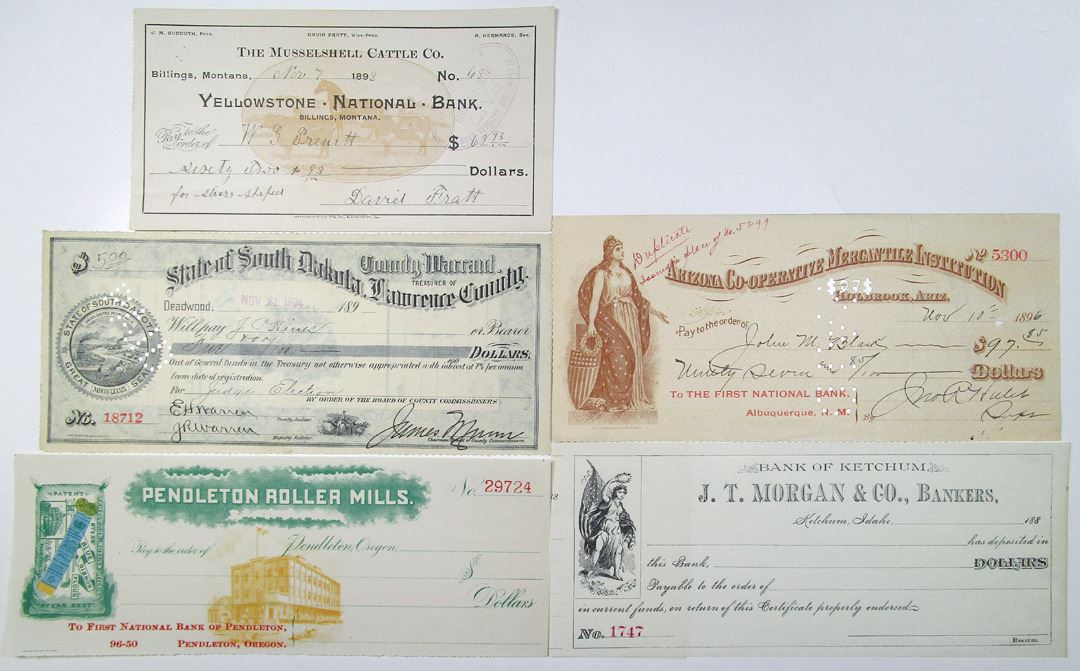 J. M. SUDDUTH, Pres. DAVID FRATT, Vice-Pres. R. HERMANCE, Sec.
THE MUSSELSHELL CATTLE CO.
Billings, Montana, Nov 7 1898 No.
YELLOWSTONE · NATIONAL · BANK.
BILLINGS, MONTANA.
Pay to the order of W G Prewitt $ 62 93
Sixty Two & 93 Dollars.
for steers shipped David Fratt
$ 500
State of South Dakota, County Warrant.
TREASURER OF
Lawrence County.
Deadwood, NOV 21 1904 189
Will pay J. O. or Bearer
DOLLARS,
Out of General funds in the Treasury not otherwise appropriated with interest at 7% per annum
from date of registration.
For Judge Election
BY ORDER OF THE BOARD OF COUNTY COMMISSIONERS
STATE OF SOUTH DAKOTA
GREAT SEAL
No. 18712
E H Warren County Auditor
J R Warren Deputy Auditor
James Munn
Chairman Board of County Commissioners.
Duplicate
Issued in place of No. 5299
No 5300
ARIZONA CO-OPERATIVE MERCANTILE INSTITUTION
HOLBROOK, ARIZ.
Nov 10 1896
Pay to the order of John M. Black $ 97.85
Ninety Seven 85/100 Dollars
TO THE FIRST NATIONAL BANK,
Albuquerque, N. M. 89
Supt
PATENT
BLUE RIBBON FLOUR
PENDLETON ROLLER MILLS.
No. 29724
Pendleton, Oregon,
Pay to the order of $
Dollars
TO FIRST NATIONAL BANK OF PENDLETON,
96-50 PENDLETON, OREGON.
BANK OF KETCHUM,
J. T. MORGAN & CO., BANKERS,
Ketchum, Idaho, 188
has deposited in
this Bank, DOLLARS
Payable to the order of
in current funds, on return of this Certificate properly endorsed
No. 1747
BANKERS.